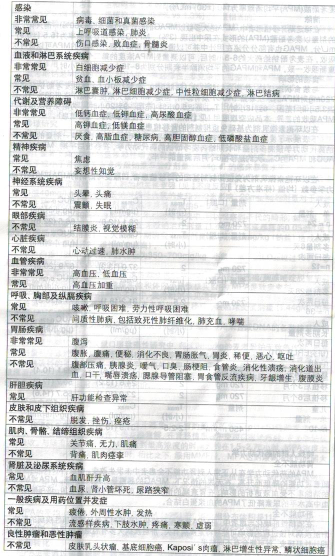 感染
非常常见 病毒、细菌和真菌感染
常见 上呼吸道感染、肺炎
不常见 伤口感染、败血症、骨髓炎
血液和淋巴系统疾病
非常常见 白细胞减少症
常见 贫血、血小板减少症
不常见 淋巴囊肿、淋巴细胞减少症、中性粒细胞减少症、淋巴结病
代谢及营养障碍
非常常见 低钙血症、低钾血症、高尿酸血症
常见 高钾血症、低镁血症
不常见 厌食、高脂血症、糖尿病、高胆固醇血症、低磷酸盐血症
精神疾病
常见 焦虑
不常见 妄想性知觉
神经系统疾病
常见 头晕、头痛
不常见 震颤、失眠
眼部疾病
不常见 结膜炎、视觉模糊
心脏疾病
不常见 心动过速、肺水肿
血管疾病
非常常见 高血压、低血压
常见 高血压加重
呼吸、胸部及纵膈疾病
常见 咳嗽、呼吸困难、劳力性呼吸困难
不常见 间质性肺病,包括致死性肺纤维化、肺充血、哮喘
胃肠疾病
非常常见 腹泻
常见 腹胀、腹痛、便秘、消化不良、胃肠胀气、胃炎、稀便、恶心、呕吐
不常见 腹部压痛、胰腺炎、嗳气、口臭、肠梗阻、食管炎、消化性溃疡、消化道出
血、口干、嘴唇溃疡、腮腺导管阻塞、胃食管反流疾病、牙龈增生、腹膜炎
肝胆疾病
常见 肝功能检查异常
皮肤和皮下组织疾病
不常见 脱发、挫伤、痤疮
肌肉、骨骼、结缔组织疾病
常见 关节痛、无力、肌痛
不常见 背痛、肌肉痉挛
肾脏及泌尿系统疾病
常见 血肌酐升高
不常见 血尿、肾小管坏死、尿路狭窄
一般疾病及用药位置并发症
常见 疲倦、外周性水肿、发热
不常见 流感样疾病、下肢水肿、疼痛、寒颤、虚弱
良性肿瘤和恶性肿瘤
不常见 皮肤乳头状瘤、基底细胞癌、Kaposi's肉瘤、淋巴增生性异常、鳞状细胞癌